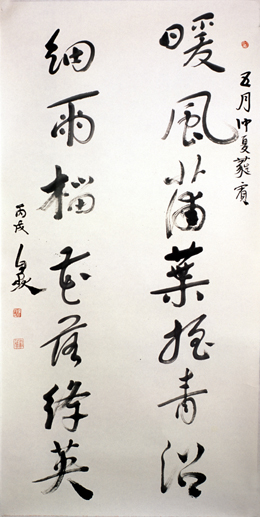 五月仲夏蕤賓
暖風蒲葉搖青沼
細雨榴花落絳英
丙戌